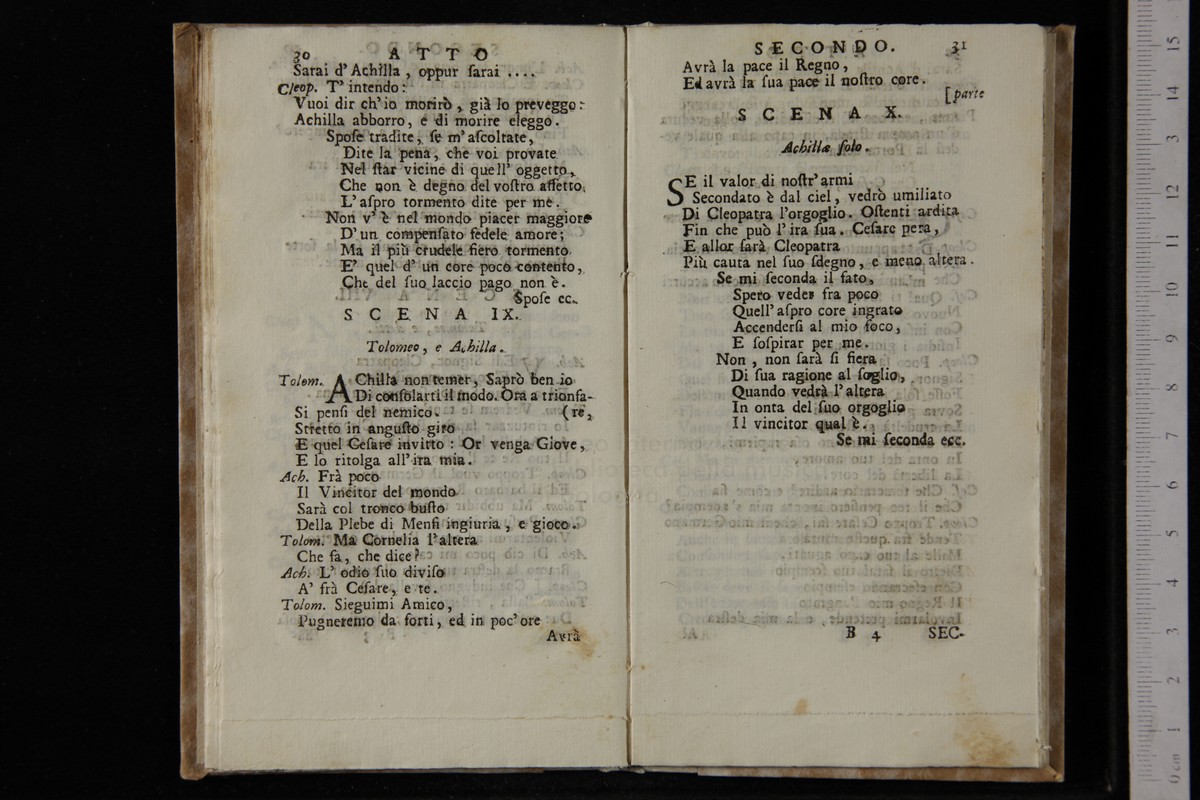 30 ATTO
Sarai d' Achilla, oppur ſarai ....
Cleop. T' intendo:
Vuoi dir ch' io morirò, già lo preveggo:
Achilla abborro, e di morire eleggo.
Spoſe tradite, ſe m' aſcoltate,
Dite la pena, che voi provate
Nel ſtar vicine di quell' oggetto,
Che non è degno del voſtro affetto,
L' aſpro tormento dite per me.
Non v' è nel mondo piacer maggiore
D' un compenſato fedele amore;
Ma il più crudele fiero tormento
E' quel d' un core poco contento,
Che del ſuo laccio pago non è.
Spoſe ec.
SCENA IX.
Tolomeo, e Achilla.
Tolom. AChilla non temer, Saprò ben io
Di conſolarti il modo. Ora a trionfa-
Si penſi del nemico. (re,
Stretto in anguſto giro
E quel Ceſare invitto : Or venga Giove,
E lo ritolga all' ira mia.
Ach. Frà poco
Il Vincitor del mondo
Sarà col tronco buſto
Della Plebe di Menfi ingiuria, e gioco.
Tolom. Ma Cornelia l' altera
Che fa, che dice?
Ach. L' odio ſuo diviſo
A' frà Ceſare, e te.
Tolom. Sieguimi Amico,
Pugneremo da forti, ed in poc' ore
Avrà
SECONDO. 31
Avrà la pace il Regno,
Ed avrà la ſua pace il noſtro core.
[parte
SCENA X.
Achilla ſolo.
SE il valor di noſtr' armi
Secondato è dal ciel, vedrò umiliato
Di Cleopatra l'orgoglio. Oſtenti ardita
Fin che può l' ira ſua. Ceſare pera,
E allor ſarà Cleopatra
Più cauta nel ſuo ſdegno, e meno altera.
Se mi ſeconda il fato,
Spero veder fra poco
Quell' aſpro core ingrato
Accenderſi al mio foco,
E ſoſpirar per me.
Non, non ſarà ſi fiera
Di ſua ragione al ſoglio,
Quando vedrà l' altera
In onta del ſuo orgoglio
Il vincitor qual è.
Se mi ſeconda ecc.
B 4 SEC-